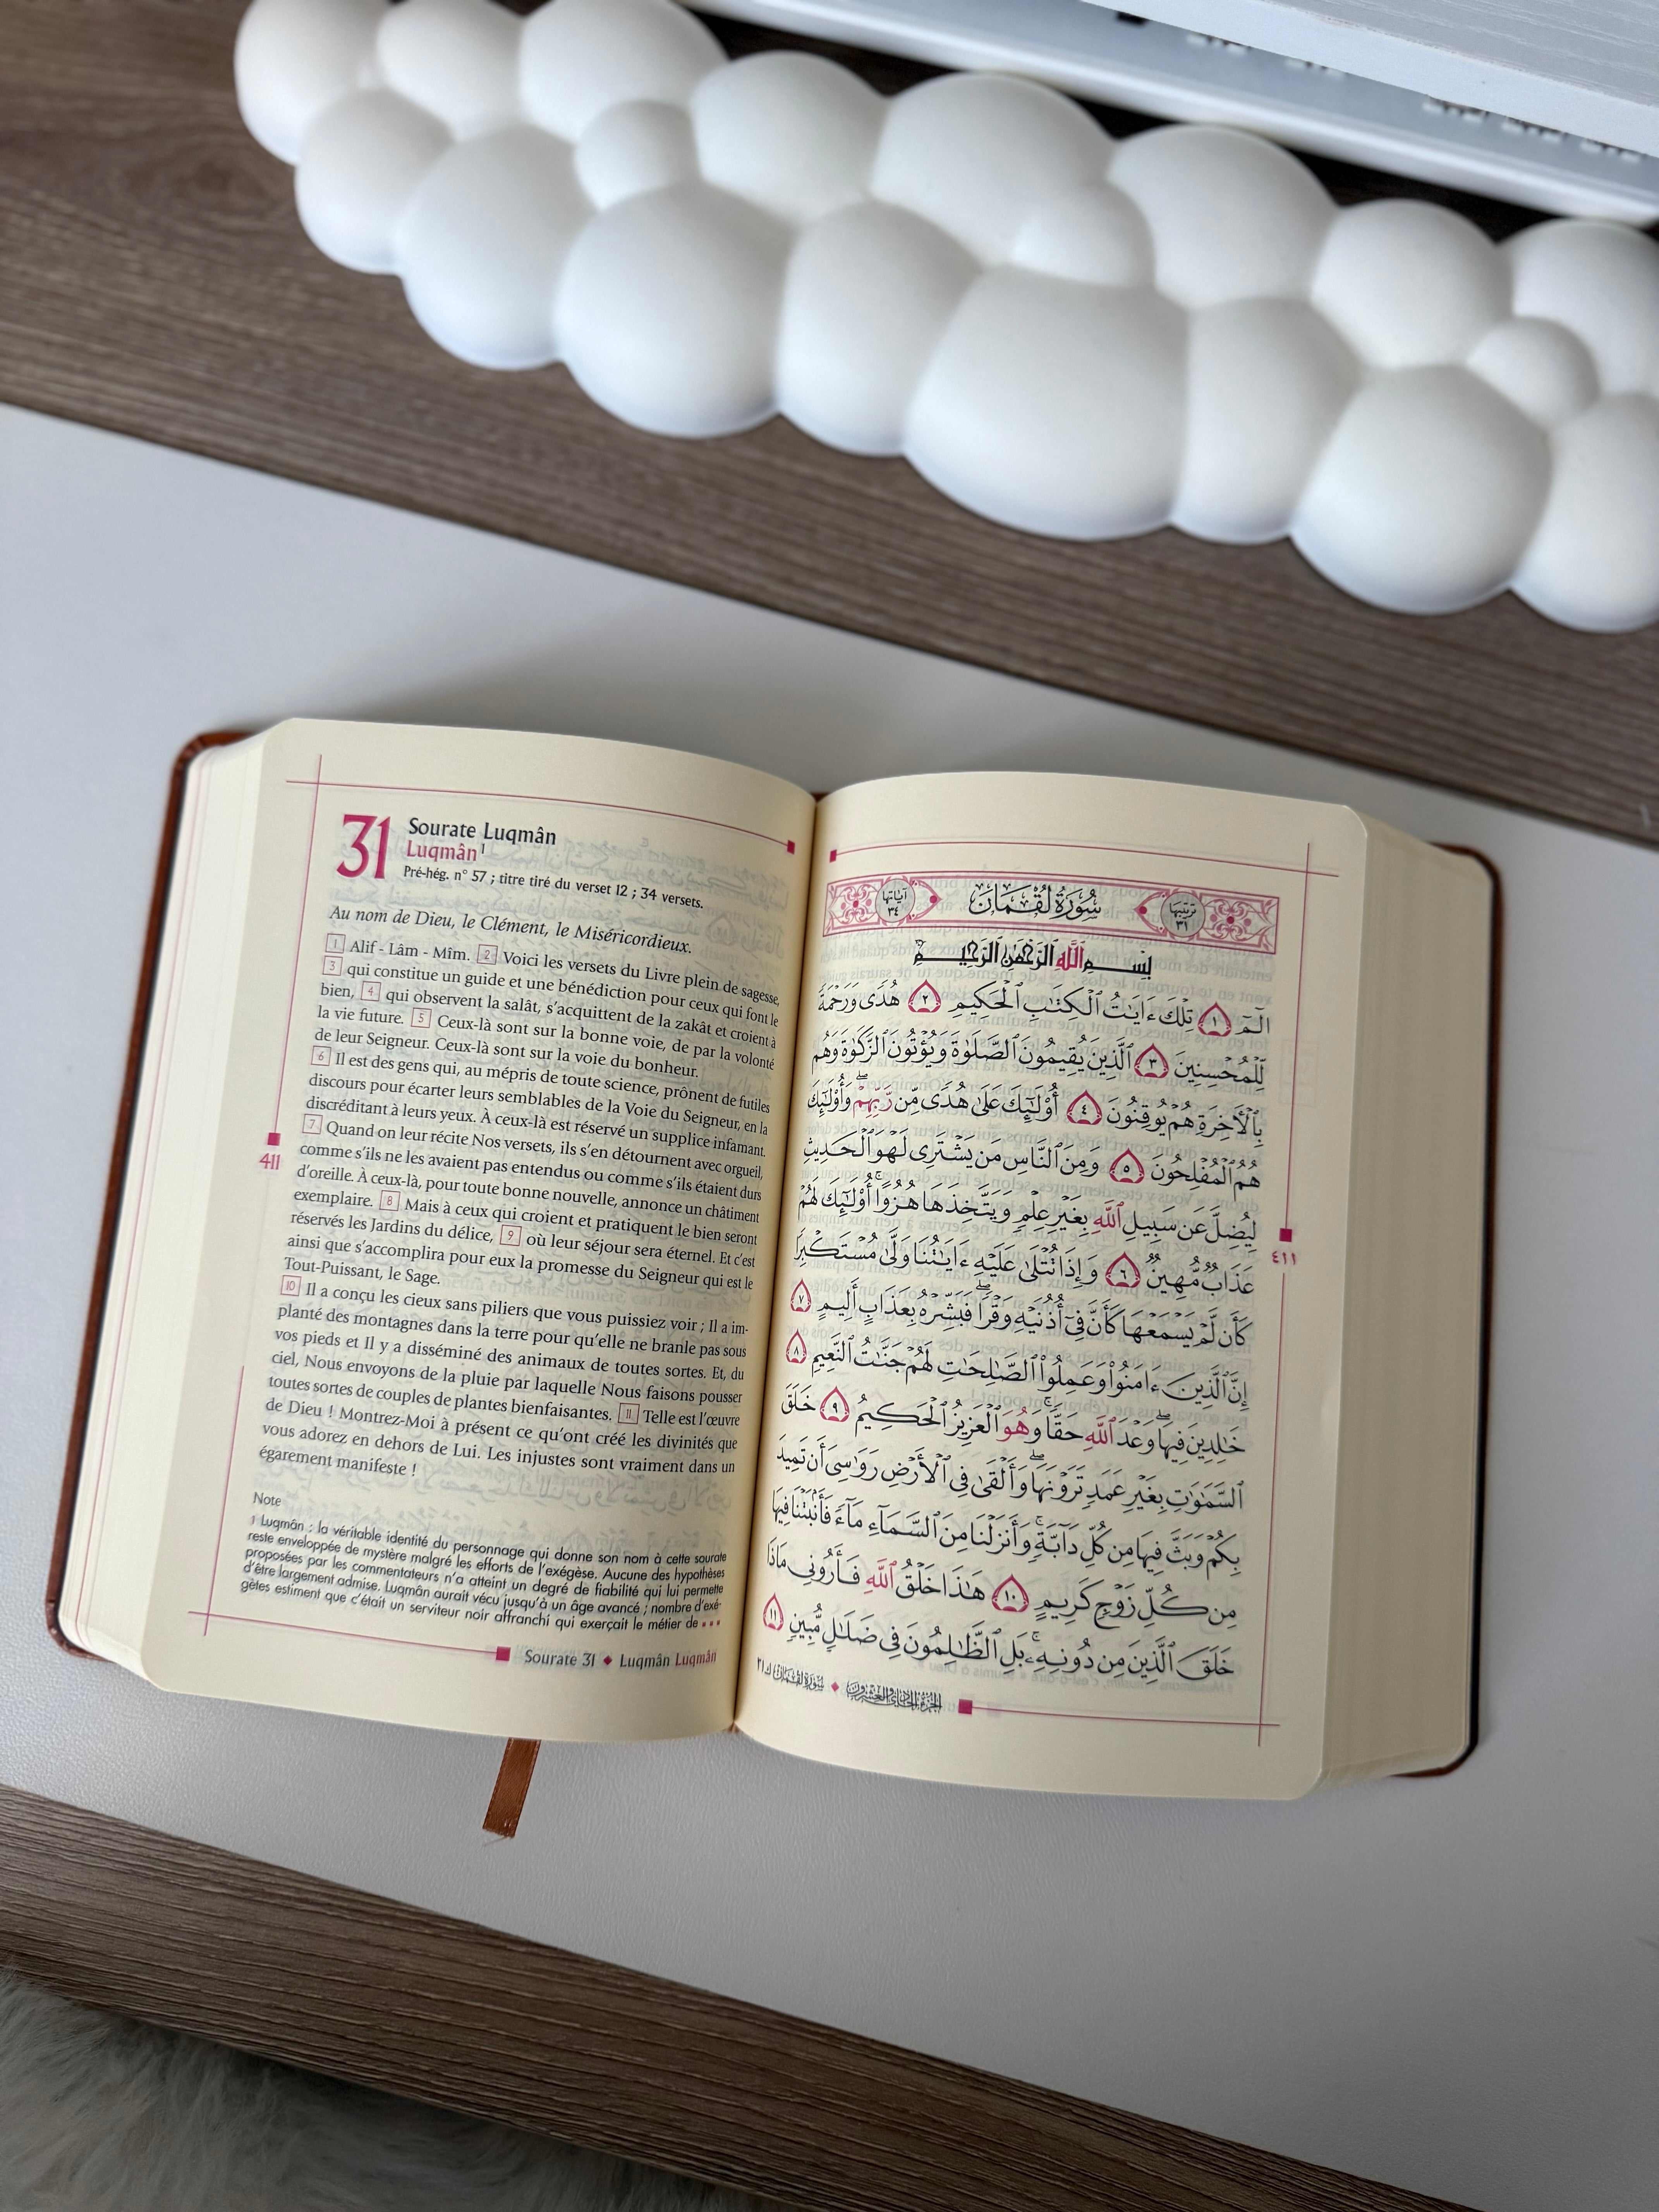 31
Sourate Luqmân
Luqmân¹
Pré-hég. n° 57 ; titre tiré du verset 12 ; 34 versets.
Au nom de Dieu, le Clément, le Miséricordieux.
1 Alif - Lâm - Mîm. 2 Voici les versets du Livre plein de sagesse,
3 qui constitue un guide et une bénédiction pour ceux qui font le
bien, 4 qui observent la salât, s'acquittent de la zakât et croient à
la vie future. 5 Ceux-là sont sur la bonne voie, de par la volonté
de leur Seigneur. Ceux-là sont sur la voie du bonheur.
6 Il est des gens qui, au mépris de toute science, prônent de futiles
discours pour écarter leurs semblables de la Voie du Seigneur, en la
discréditant à leurs yeux. À ceux-là est réservé un supplice infamant.
7 Quand on leur récite Nos versets, ils s'en détournent avec orgueil,
comme s'ils ne les avaient pas entendus ou comme s'ils étaient durs
d'oreille. À ceux-là, pour toute bonne nouvelle, annonce un châtiment
exemplaire. 8 Mais à ceux qui croient et pratiquent le bien seront
réservés les Jardins du délice, 9 où leur séjour sera éternel. Et c'est
ainsi que s'accomplira pour eux la promesse du Seigneur qui est le
Tout-Puissant, le Sage.
10 Il a conçu les cieux sans piliers que vous puissiez voir ; Il a im-
planté des montagnes dans la terre pour qu'elle ne branle pas sous
vos pieds et Il y a disséminé des animaux de toutes sortes. Et, du
ciel, Nous envoyons de la pluie par laquelle Nous faisons pousser
toutes sortes de couples de plantes bienfaisantes. 11 Telle est l'œuvre
de Dieu ! Montrez-Moi à présent ce qu'ont créé les divinités que
vous adorez en dehors de Lui. Les injustes sont vraiment dans un
égarement manifeste !
Note
1 Luqmân : la véritable identité du personnage qui donne son nom à cette sourate
reste enveloppée de mystère malgré les efforts de l'exégèse. Aucune des hypothèses
proposées par les commentateurs n'a atteint un degré de fiabilité qui lui permette
d'être largement admise. Luqmân aurait vécu jusqu'à un âge avancé ; nombre d'exé-
gètes estiment que c'était un serviteur noir affranchi qui exerçait le métier de
411
Sourate 31 ◆ Luqmân Luqmân
ترتيبها ٣١ سُورَةُ لُقْمَان آياتها ٣٤
بِسْمِ ٱللَّهِ ٱلرَّحْمَٰنِ ٱلرَّحِيمِ
الٓمٓ ١ تِلْكَ ءَايَٰتُ ٱلْكِتَٰبِ ٱلْحَكِيمِ ٢ هُدًى وَرَحْمَةً
لِّلْمُحْسِنِينَ ٣ ٱلَّذِينَ يُقِيمُونَ ٱلصَّلَوٰةَ وَيُؤْتُونَ ٱلزَّكَوٰةَ وَهُم
بِٱلْءَاخِرَةِ هُمْ يُوقِنُونَ ٤ أُوْلَٰٓئِكَ عَلَىٰ هُدًى مِّن رَّبِّهِمْۖ وَأُوْلَٰٓئِكَ
هُمُ ٱلْمُفْلِحُونَ ٥ وَمِنَ ٱلنَّاسِ مَن يَشْتَرِى لَهْوَ ٱلْحَدِيثِ
لِيُضِلَّ عَن سَبِيلِ ٱللَّهِ بِغَيْرِ عِلْمٍ وَيَتَّخِذَهَا هُزُوًاۚ أُوْلَٰٓئِكَ لَهُمْ
عَذَابٌ مُّهِينٌ ٦ وَإِذَا تُتْلَىٰ عَلَيْهِ ءَايَٰتُنَا وَلَّىٰ مُسْتَكْبِرًا
كَأَن لَّمْ يَسْمَعْهَا كَأَنَّ فِىٓ أُذُنَيْهِ وَقْرًاۖ فَبَشِّرْهُ بِعَذَابٍ أَلِيمٍ ٧
إِنَّ ٱلَّذِينَ ءَامَنُواْ وَعَمِلُواْ ٱلصَّٰلِحَٰتِ لَهُمْ جَنَّٰتُ ٱلنَّعِيمِ ٨
خَٰلِدِينَ فِيهَاۖ وَعْدَ ٱللَّهِ حَقًّاۚ وَهُوَ ٱلْعَزِيزُ ٱلْحَكِيمُ ٩ خَلَقَ
ٱلسَّمَٰوَٰتِ بِغَيْرِ عَمَدٍ تَرَوْنَهَاۖ وَأَلْقَىٰ فِى ٱلْأَرْضِ رَوَٰسِىَ أَن تَمِيدَ
بِكُمْ وَبَثَّ فِيهَا مِن كُلِّ دَآبَّةٍۚ وَأَنزَلْنَا مِنَ ٱلسَّمَآءِ مَآءً فَأَنۢبَتْنَا فِيهَا
مِن كُلِّ زَوْجٍ كَرِيمٍ ١٠ هَٰذَا خَلْقُ ٱللَّهِ فَأَرُونِى مَاذَا
خَلَقَ ٱلَّذِينَ مِن دُونِهِۦۚ بَلِ ٱلظَّٰلِمُونَ فِى ضَلَٰلٍ مُّبِينٍ ١١
٤١١
الجزء الحادي والعشرون ◆ سورة لقمان ٣١